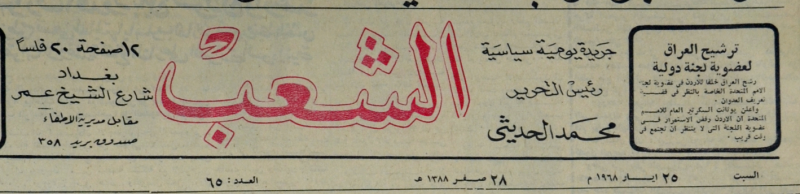 ترشيح العراق
لعضوية لجنة دولية
رشح العراق خلفا للأردن في عضوية لجنة
الامم المتحدة الخاصة بالنظر في قضية
تعريف العدوان ٠
وأعلن يوثانت السكرتير العام للامم
المتحدة ان الاردن رفض الاستمرار في
عضوية اللجنة التي لا ينتظر ان تجتمع في
وقت قريب ٠
جريدة يومية سياسية
رئيس التحرير
محمد الحديثي
الشعب
١٢ صفحة ٢٠ فلسا
بغداد
شارع الشيخ عمر
مقابل مديرية الاطفاء
صندوق بريد ٣٥٨
السبت ٢٥ ايار ١٩٦٨ م ٢٨ صفر ١٣٨٨ هـ العدد : ٦٥